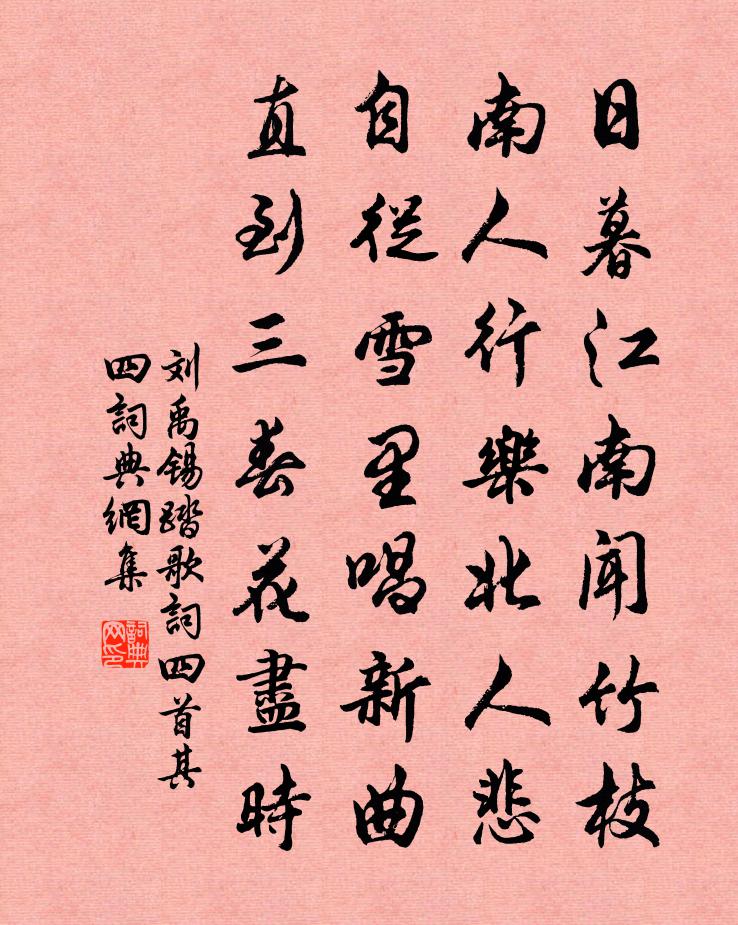 日暮江南聞竹枝
南人行樂北人悲
自從雪里唱新曲
直到三春花盡時
刘禹锡踏歌詞四首其
四詞典網集
詞典
网印